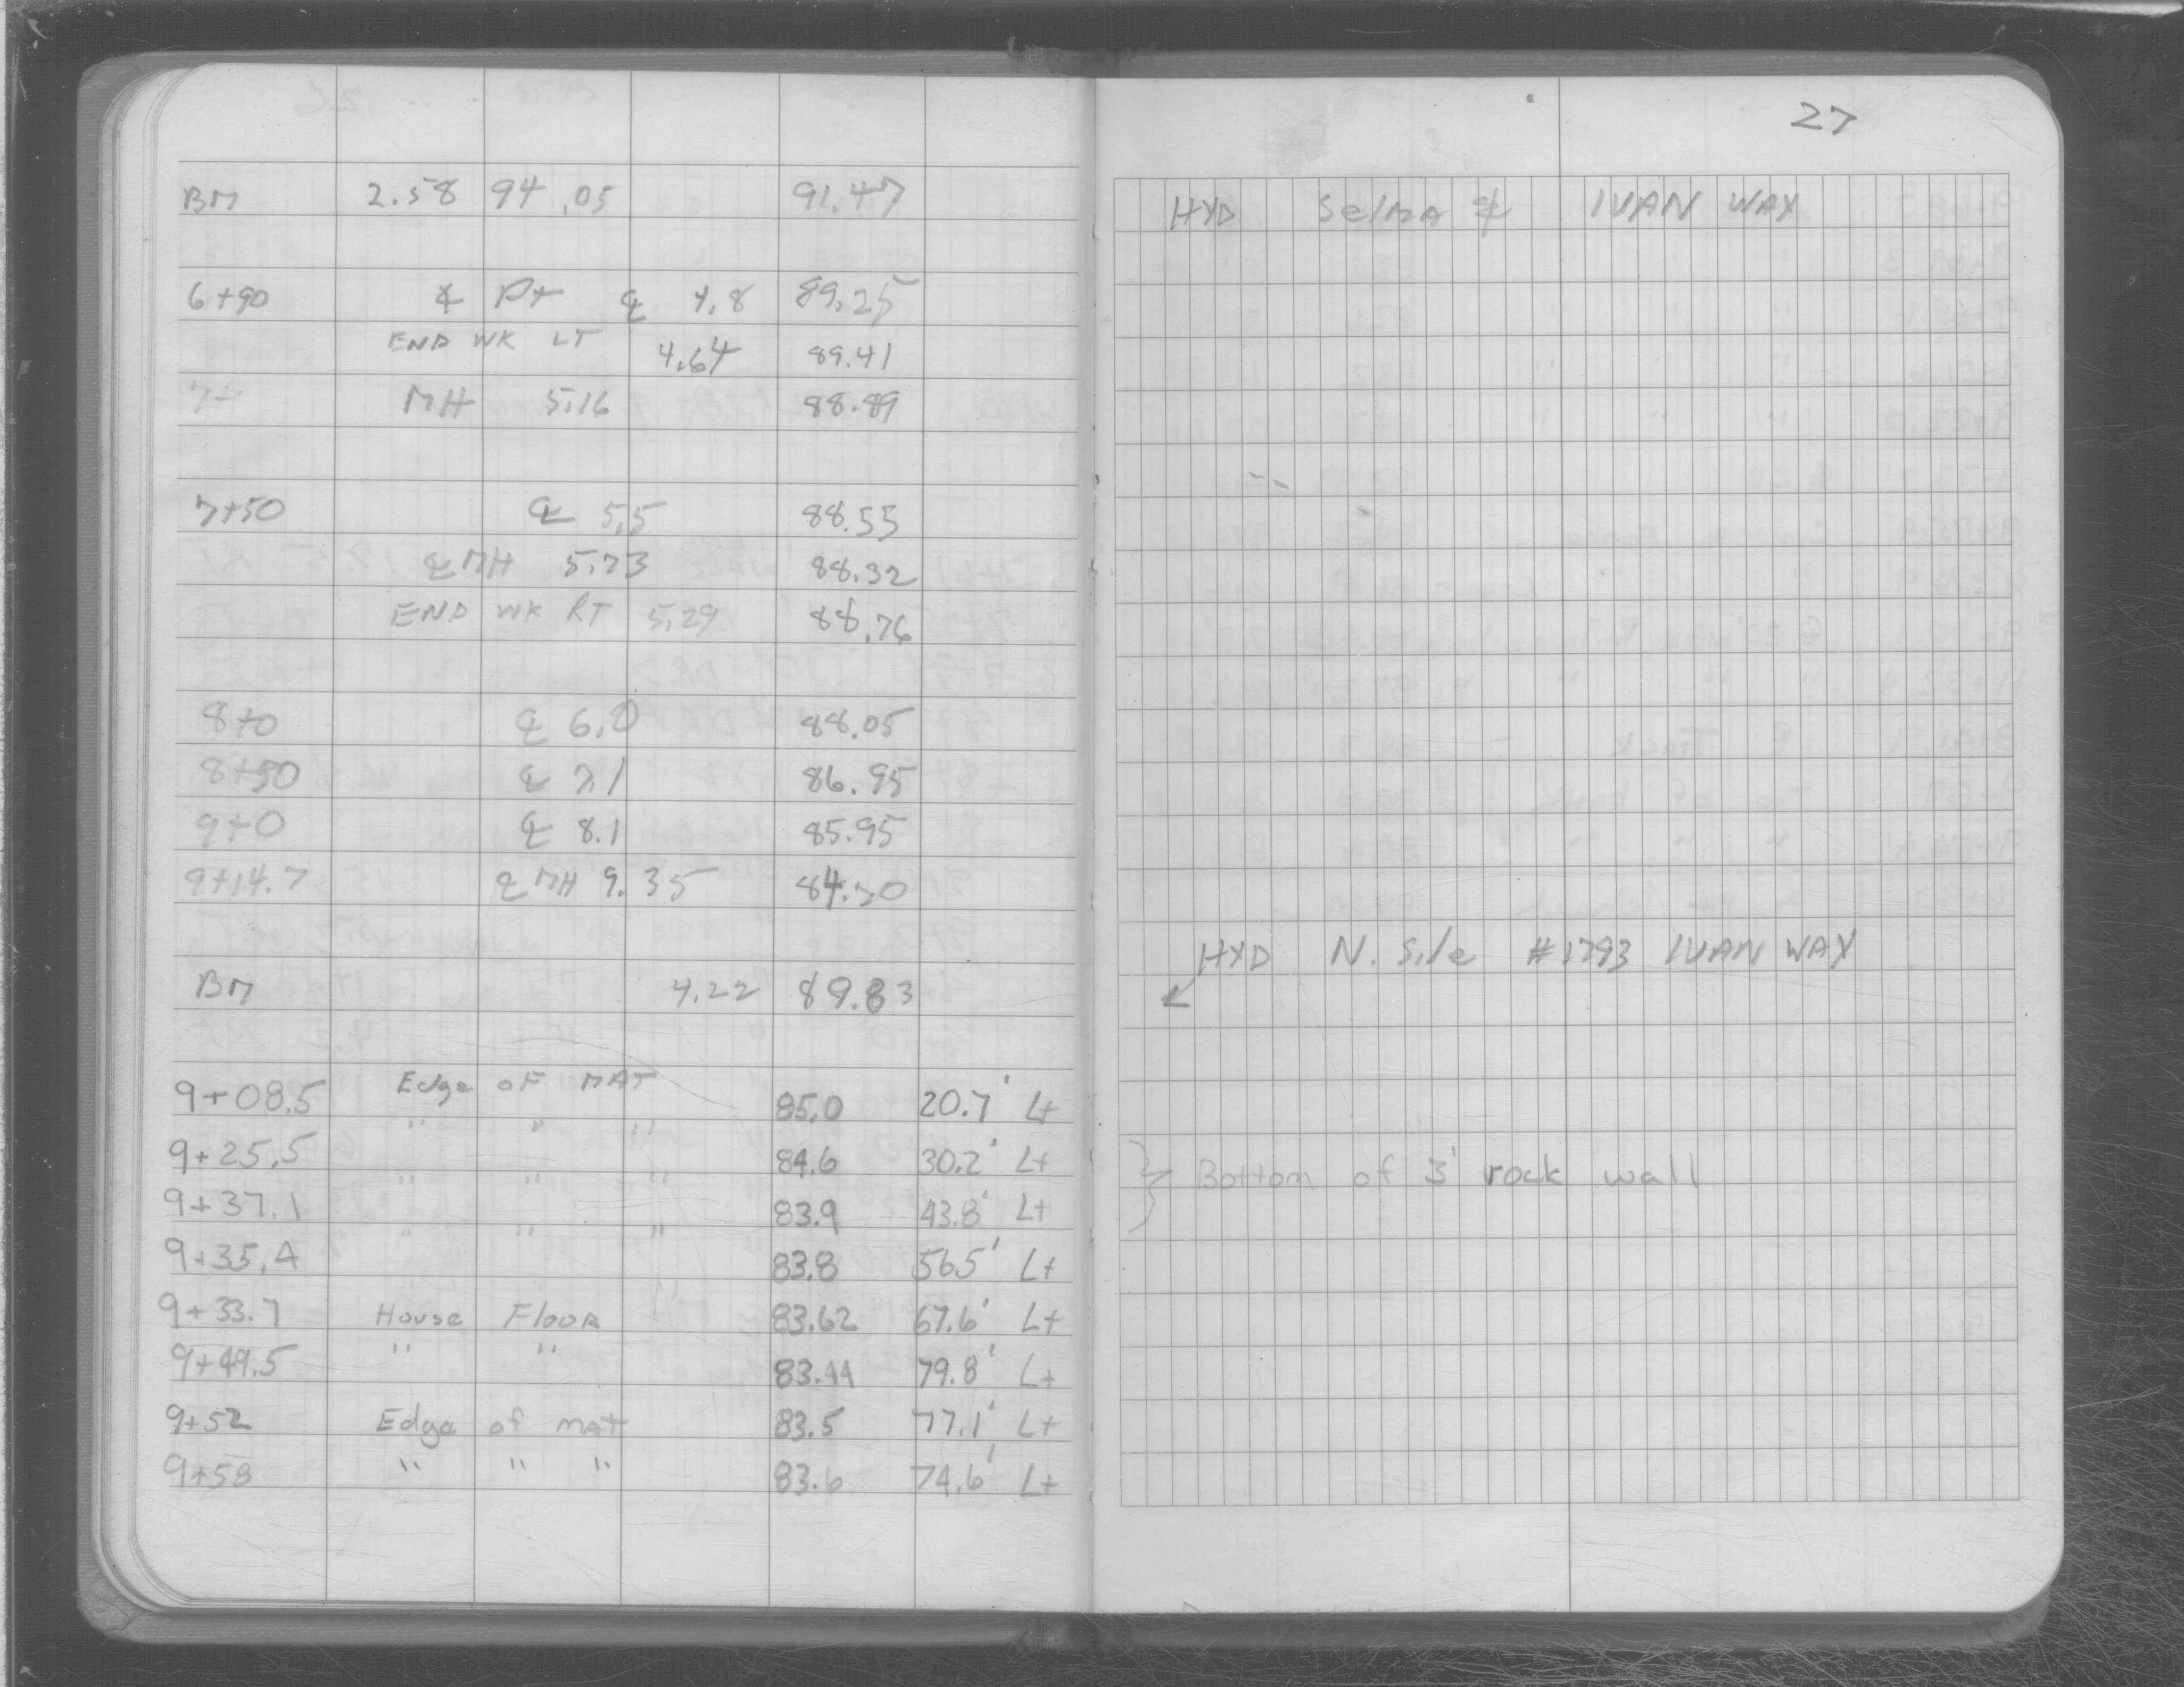 27
BM 2.58 94.05 91.47
HYD Selma & IVAN WAY
6+90 ℄ Pt ℄ 4.8 89.25
END WK LT 4.64 89.41
7+ MH 5.16 88.89
7+50 ℄ 5.5 88.55
℄ MH 5.73 88.32
END WK RT 5.29 88.76
8+0 ℄ 6.0 88.05
8+50 ℄ 7.1 86.95
9+0 ℄ 8.1 85.95
9+14.7 ℄ MH 9.35 84.70
HYD N. Side #1793 IVAN WAY
BM 4.22 89.83
9+08.5 Edge of MAT 85.0 20.7' Lt
9+25.5 " " " 84.6 30.2' Lt
9+37.1 " " " 83.9 43.8' Lt
9+35.4 " " " 83.8 56.5' Lt
Bottom of 3' rock wall
9+33.7 House Floor 83.62 67.6' Lt
9+49.5 " " 83.44 79.8' Lt
9+52 Edge of MAT 83.5 77.1' Lt
9+58 " " " 83.6 74.6' Lt